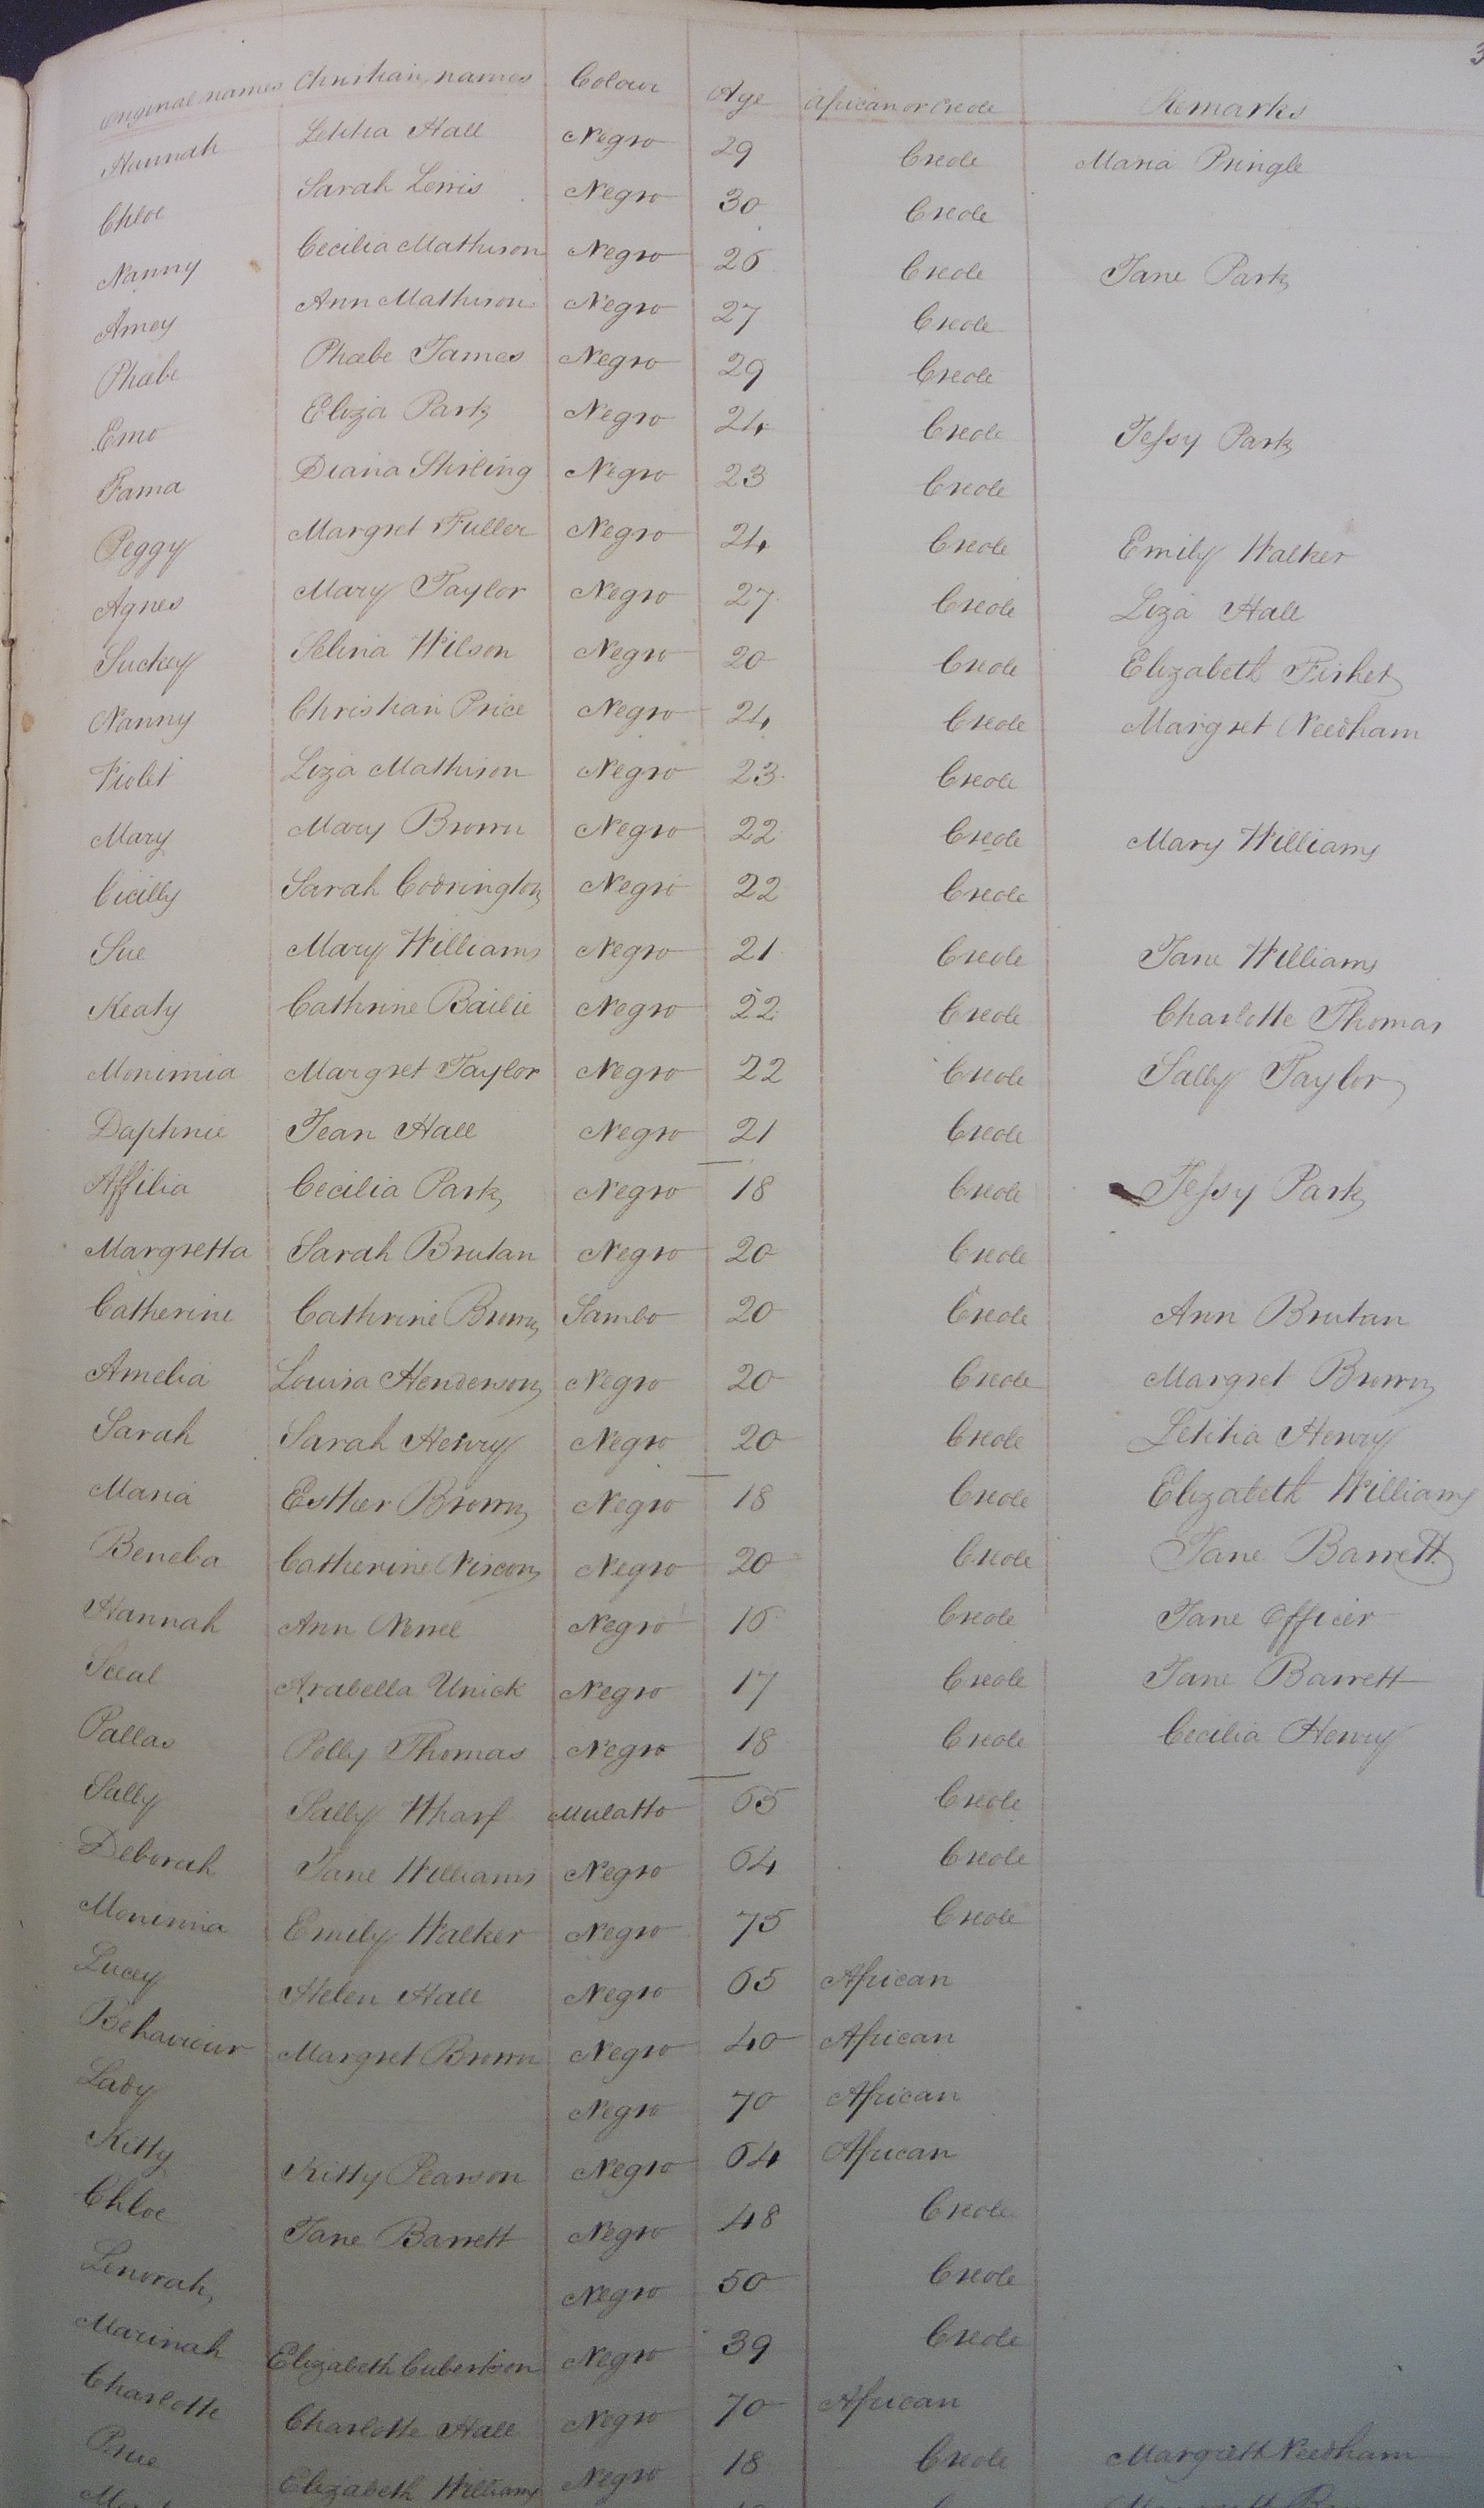 3
Original names Christian names Colour Age African or Creole Remarks
Hannah Letitia Hall Negro 29 Creole Maria Pringle
Chloe Sarah Lewis Negro 30 Creole
Nanny Cecilia Mathison Negro 26 Creole Jane Park
Amey Ann Mathison Negro 27 Creole
Phœbe Phœbe James Negro 29 Creole
Emo Eliza Park Negro 24 Creole Jessy Park
Fama Diana Stirling Negro 23 Creole
Peggy Margret Fuller Negro 24 Creole Emily Walker
Agnes Mary Taylor Negro 27 Creole Liza Hall
Suckey Selina Wilson Negro 20 Creole Elizabeth Fisher
Nanny Christian Price Negro 24 Creole Margret Needham
Violet Liza Mathison Negro 23 Creole
Mary Mary Brown Negro 22 Creole Mary Williams
Cicilly Sarah Codrington Negro 22 Creole
Sue Mary Williams Negro 21 Creole Jane Williams
Keaty Cathrine Bailie Negro 22 Creole Charlotte Thomas
Monimia Margret Taylor Negro 22 Creole Sally Taylor
Daphnie Jean Hall Negro 21 Creole
Affilia Cecilia Park Negro 18 Creole Jessy Park
Margretta Sarah Brutan Negro 20 Creole
Catherine Cathrine Brown Sambo 20 Creole Ann Brutan
Amelia Louisa Henderson Negro 20 Creole Margret Brown
Sarah Sarah Henry Negro 20 Creole Letitia Henry
Maria Esther Brown Negro 18 Creole Elizabeth Williams
Beneba Catherine Negro 20 Creole Jane Barrett
Hannah Ann Negro 16 Creole Jane Officer
Arabella Unick Negro 17 Creole Jane Barrett
Pallas Polly Thomas Negro 18 Creole Cecilia Henry
Sally Sally Wharf Mulatto 65 Creole
Deborah Jane Williams Negro 64 Creole
Monimia Emily Walker Negro 75 Creole
Lucey Helen Hall Negro 65 African
Behaviour Margret Brown Negro 40 African
Lady Negro 70 African
Kitty Kitty Pearson Negro 64 African
Chloe Jane Barrett Negro 48 Creole
Lenorah Negro 50 Creole
Marinah Elizabeth Cubertson Negro 39 Creole
Charlotte Charlotte Hall Negro 70 African
Prue Elizabeth Williams Negro 18 Creole Margrett Needham